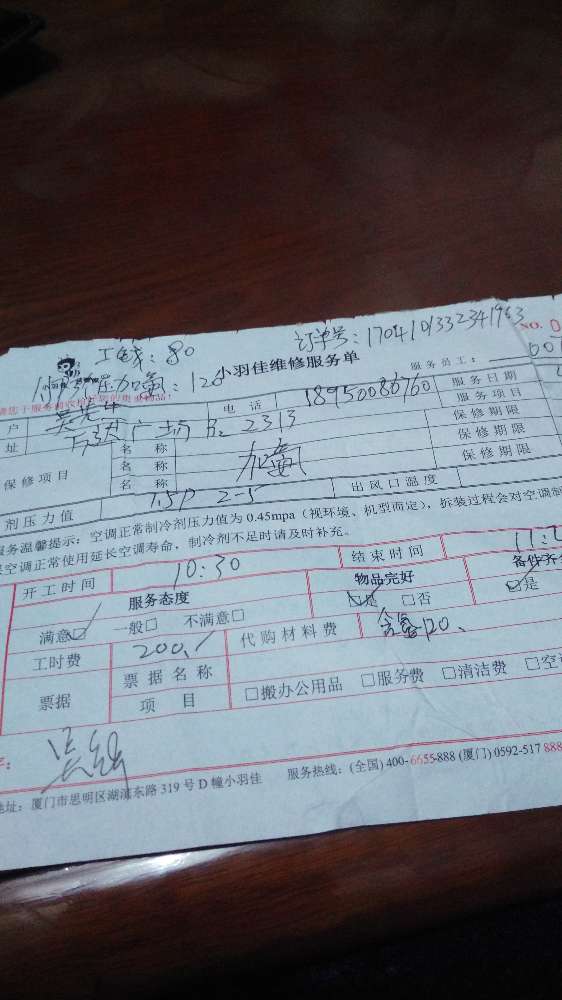 订单号:1704101332341953
工钱:80
小羽佳维修服务单
NO. 0
压力 氟:120
服务员工:
户
电 话
18950080760
服务日期
址
万达广场 B2 2313
服务项目
保修项目
名 称
名 称
名 称
加氟
保修期限
保修期限
保修期限
剂压力值
1.5P 2-5
出风口温度
服务温馨提示:空调正常制冷剂压力值为 0.45mpa(视环境、机型而定),拆装过程会对空调制
空调正常使用延长空调寿命,制冷剂不足时请及时补充。
开工时间
10:30
结束时间
11:2
服务态度
物品完好
备件齐全
满意☑ 一般□ 不满意□
☑是 □否
☑是
工时费
200
代购材料费
含氟120
票据
票据名称
项 目
□搬办公用品 □服务费 □清洁费 □空
地址:厦门市思明区湖滨东路 319 号 D 幢小羽佳 服务热线:(全国) 400-6655-888 (厦门) 0592-517 888